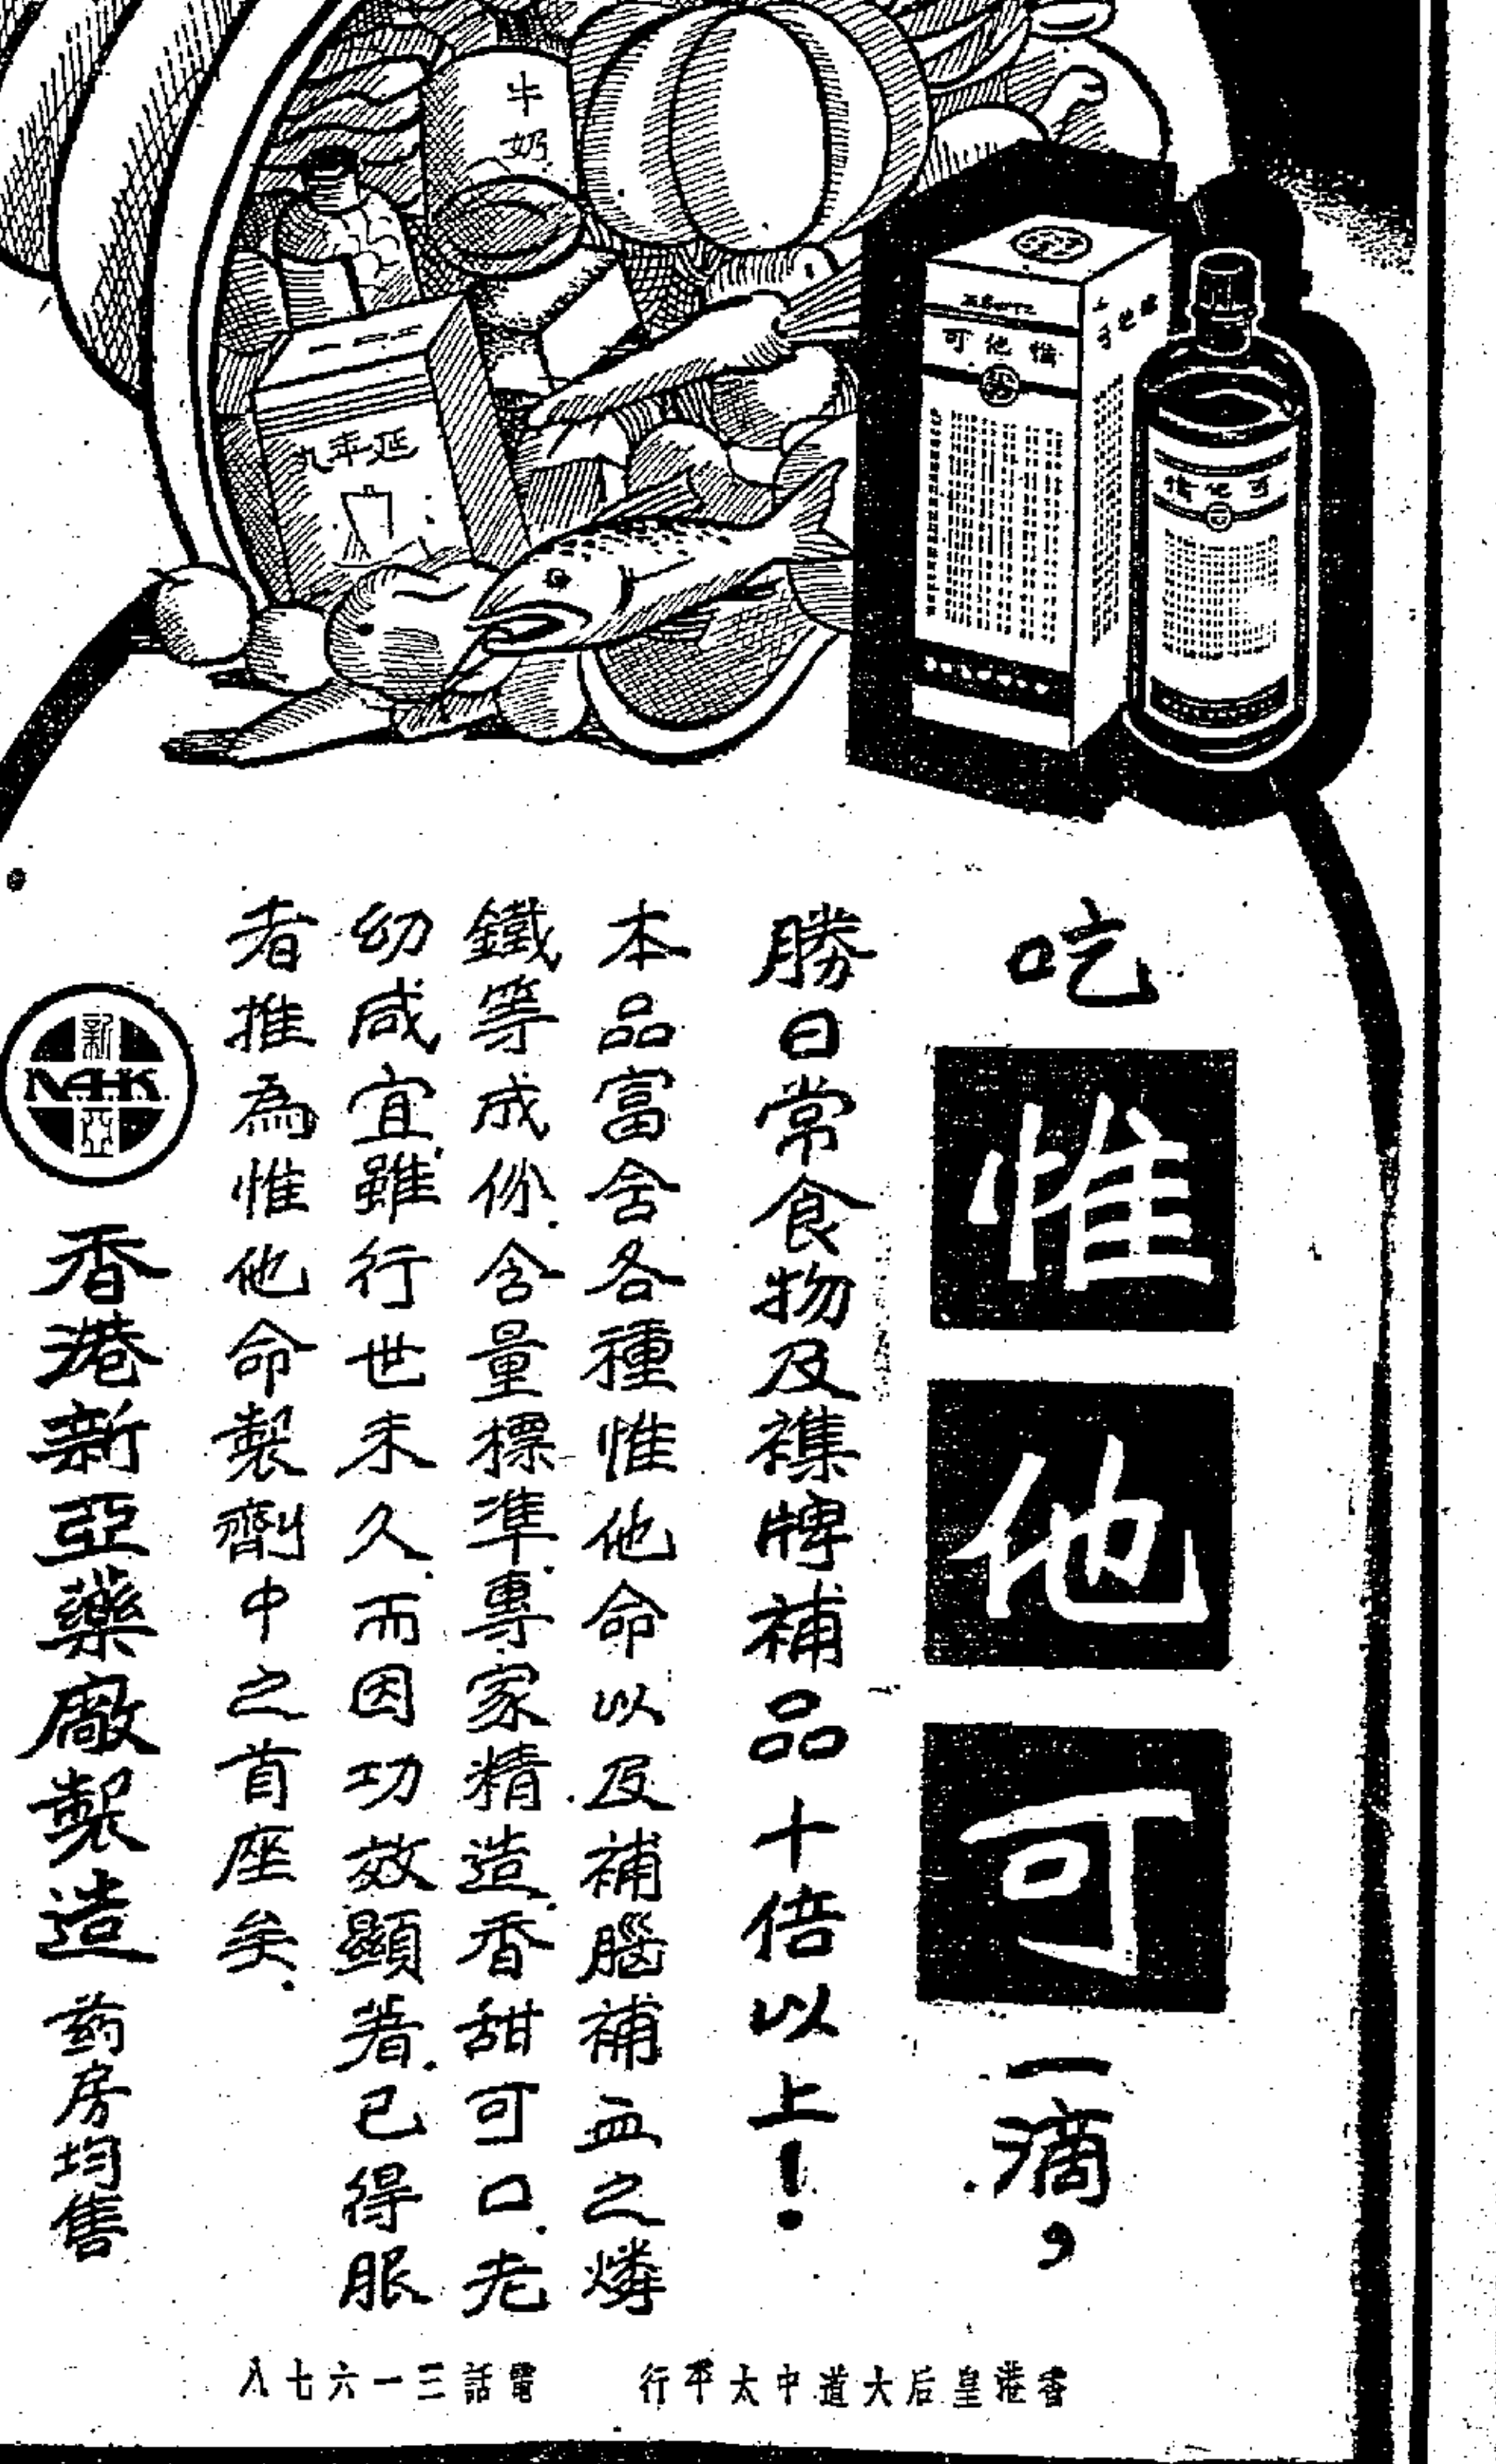 牛奶
九年延
惟他可
惟他可
吃惟他可一滴，
勝日常食物及襍牌補品十倍以上！
本品富含各種惟他命以及補腦補血之燐
鐵等成份.含量標準.專家精造.香甜可口.老
幼咸宜.雖行世未久.而因功效顯着.已得服
者推為惟他命製劑中之首座矣.
新
N.A.H.K.
亞
香港新亞藥廠製造 药房均售
香港皇后大道中太平行 電話三一六七八